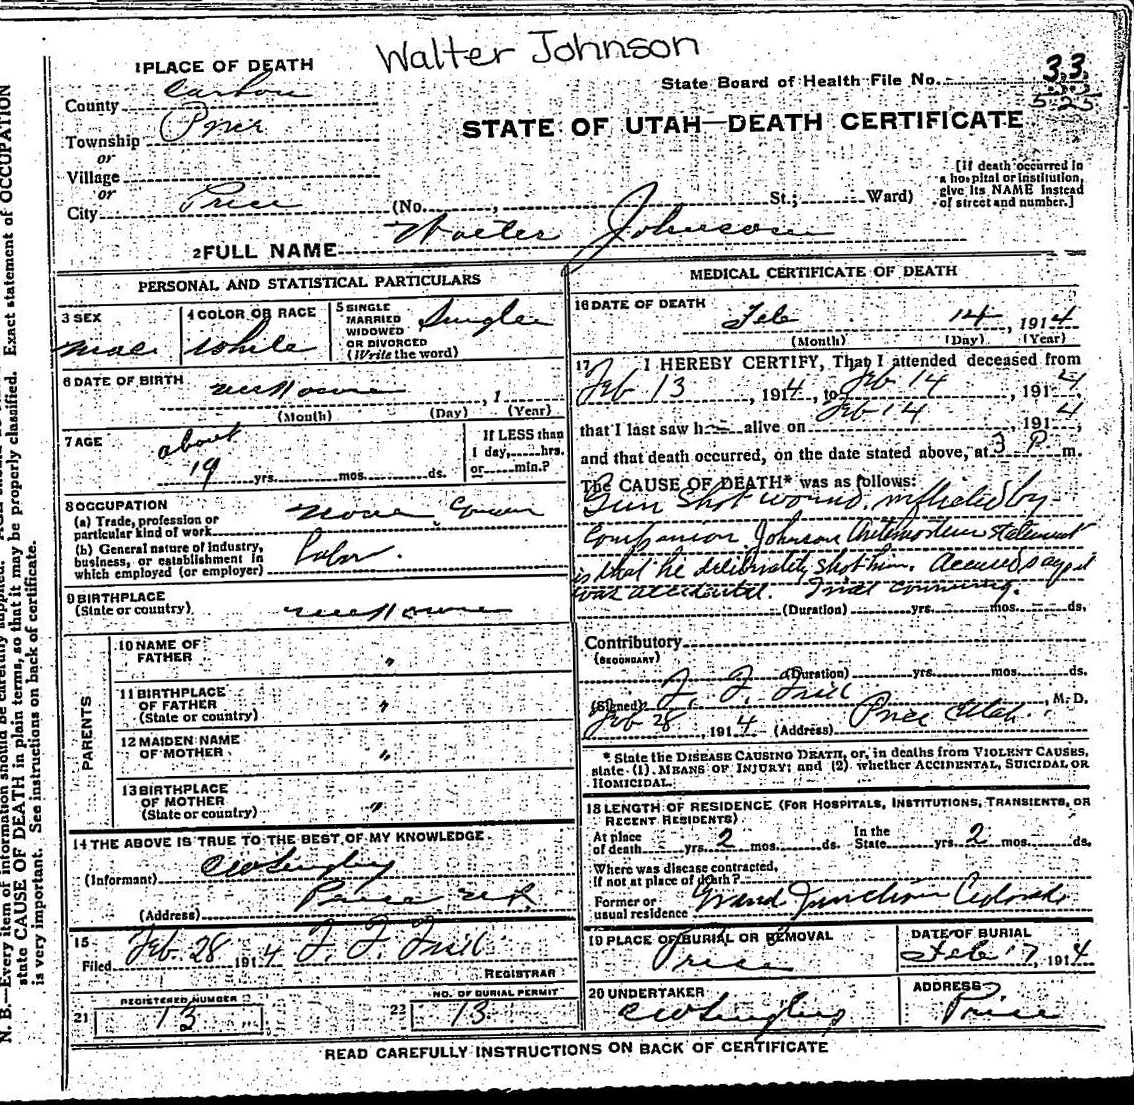 Walter Johnson
1 PLACE OF DEATH
State Board of Health File No. 33
525
County Carbon
Township Price
STATE OF UTAH—DEATH CERTIFICATE
or
Village
or
City Price (No. , St.; Ward)
[If death occurred in
a hospital or institution,
give its NAME instead
of street and number.]
2 FULL NAME Walter Johnson
PERSONAL AND STATISTICAL PARTICULARS
3 SEX
4 COLOR OR RACE White
5 SINGLE
MARRIED
WIDOWED
OR DIVORCED
(Write the word)
Single
6 DATE OF BIRTH unknown , 1
(Month) (Day) (Year)
7 AGE
about
19 yrs. mos. ds.
If LESS than
1 day, hrs.
or min.?
8 OCCUPATION
(a) Trade, profession or
particular kind of work None
(b) General nature of industry,
business, or establishment in
which employed (or employer) Labor.
9 BIRTHPLACE
(State or country) unknown
PARENTS
10 NAME OF
FATHER "
11 BIRTHPLACE
OF FATHER
(State or country) "
12 MAIDEN NAME
OF MOTHER "
13 BIRTHPLACE
OF MOTHER
(State or country) "
14 THE ABOVE IS TRUE TO THE BEST OF MY KNOWLEDGE.
(Informant)
(Address) Price
15
Filed Feb. 28 1914
REGISTRAR
21 REGISTERED NUMBER 13
22 NO. OF BURIAL PERMIT 13
MEDICAL CERTIFICATE OF DEATH
16 DATE OF DEATH
Feb 14 , 1914
(Month) (Day) (Year)
17 I HEREBY CERTIFY, That I attended deceased from
Feb 13 , 1914, to Feb 14 , 1914
that I last saw h alive on Feb 14 , 1914,
and that death occurred, on the date stated above, at 3 P m.
The CAUSE OF DEATH* was as follows:
Gun Shot wound inflicted by
Companion Johnson Antemortem statement
is that he deliberately shot him. Accused says it
was accidental. Trial coming.
(Duration) yrs. mos. ds.
Contributory
(SECONDARY)
(Duration) yrs. mos. ds.
(Signed) M. D.
Feb 28 1914 (Address) Price Utah.
* State the DISEASE CAUSING DEATH, or, in deaths from VIOLENT CAUSES,
state (1) MEANS OF INJURY; and (2) whether ACCIDENTAL, SUICIDAL OR
HOMICIDAL.
18 LENGTH OF RESIDENCE (FOR HOSPITALS, INSTITUTIONS, TRANSIENTS, OR
RECENT RESIDENTS)
At place
of death yrs. 2 mos. ds.
In the
State yrs. 2 mos. ds.
Where was disease contracted,
If not at place of death?
Former or
usual residence Grand Junction Colorado
19 PLACE OF BURIAL OR REMOVAL
Price
DATE OF BURIAL
Feb 17, 1914
20 UNDERTAKER
ADDRESS
Price
READ CAREFULLY INSTRUCTIONS ON BACK OF CERTIFICATE
N. B.—Every item of information should be carefully supplied. Exact statement of OCCUPATION
state CAUSE OF DEATH in plain terms, so that it may be properly classified.
is very important. See instructions on back of certificate.